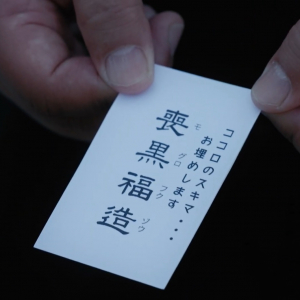 ココロのスキマ・・・
お埋めします
喪黒福造
モ グロ フク ゾウ